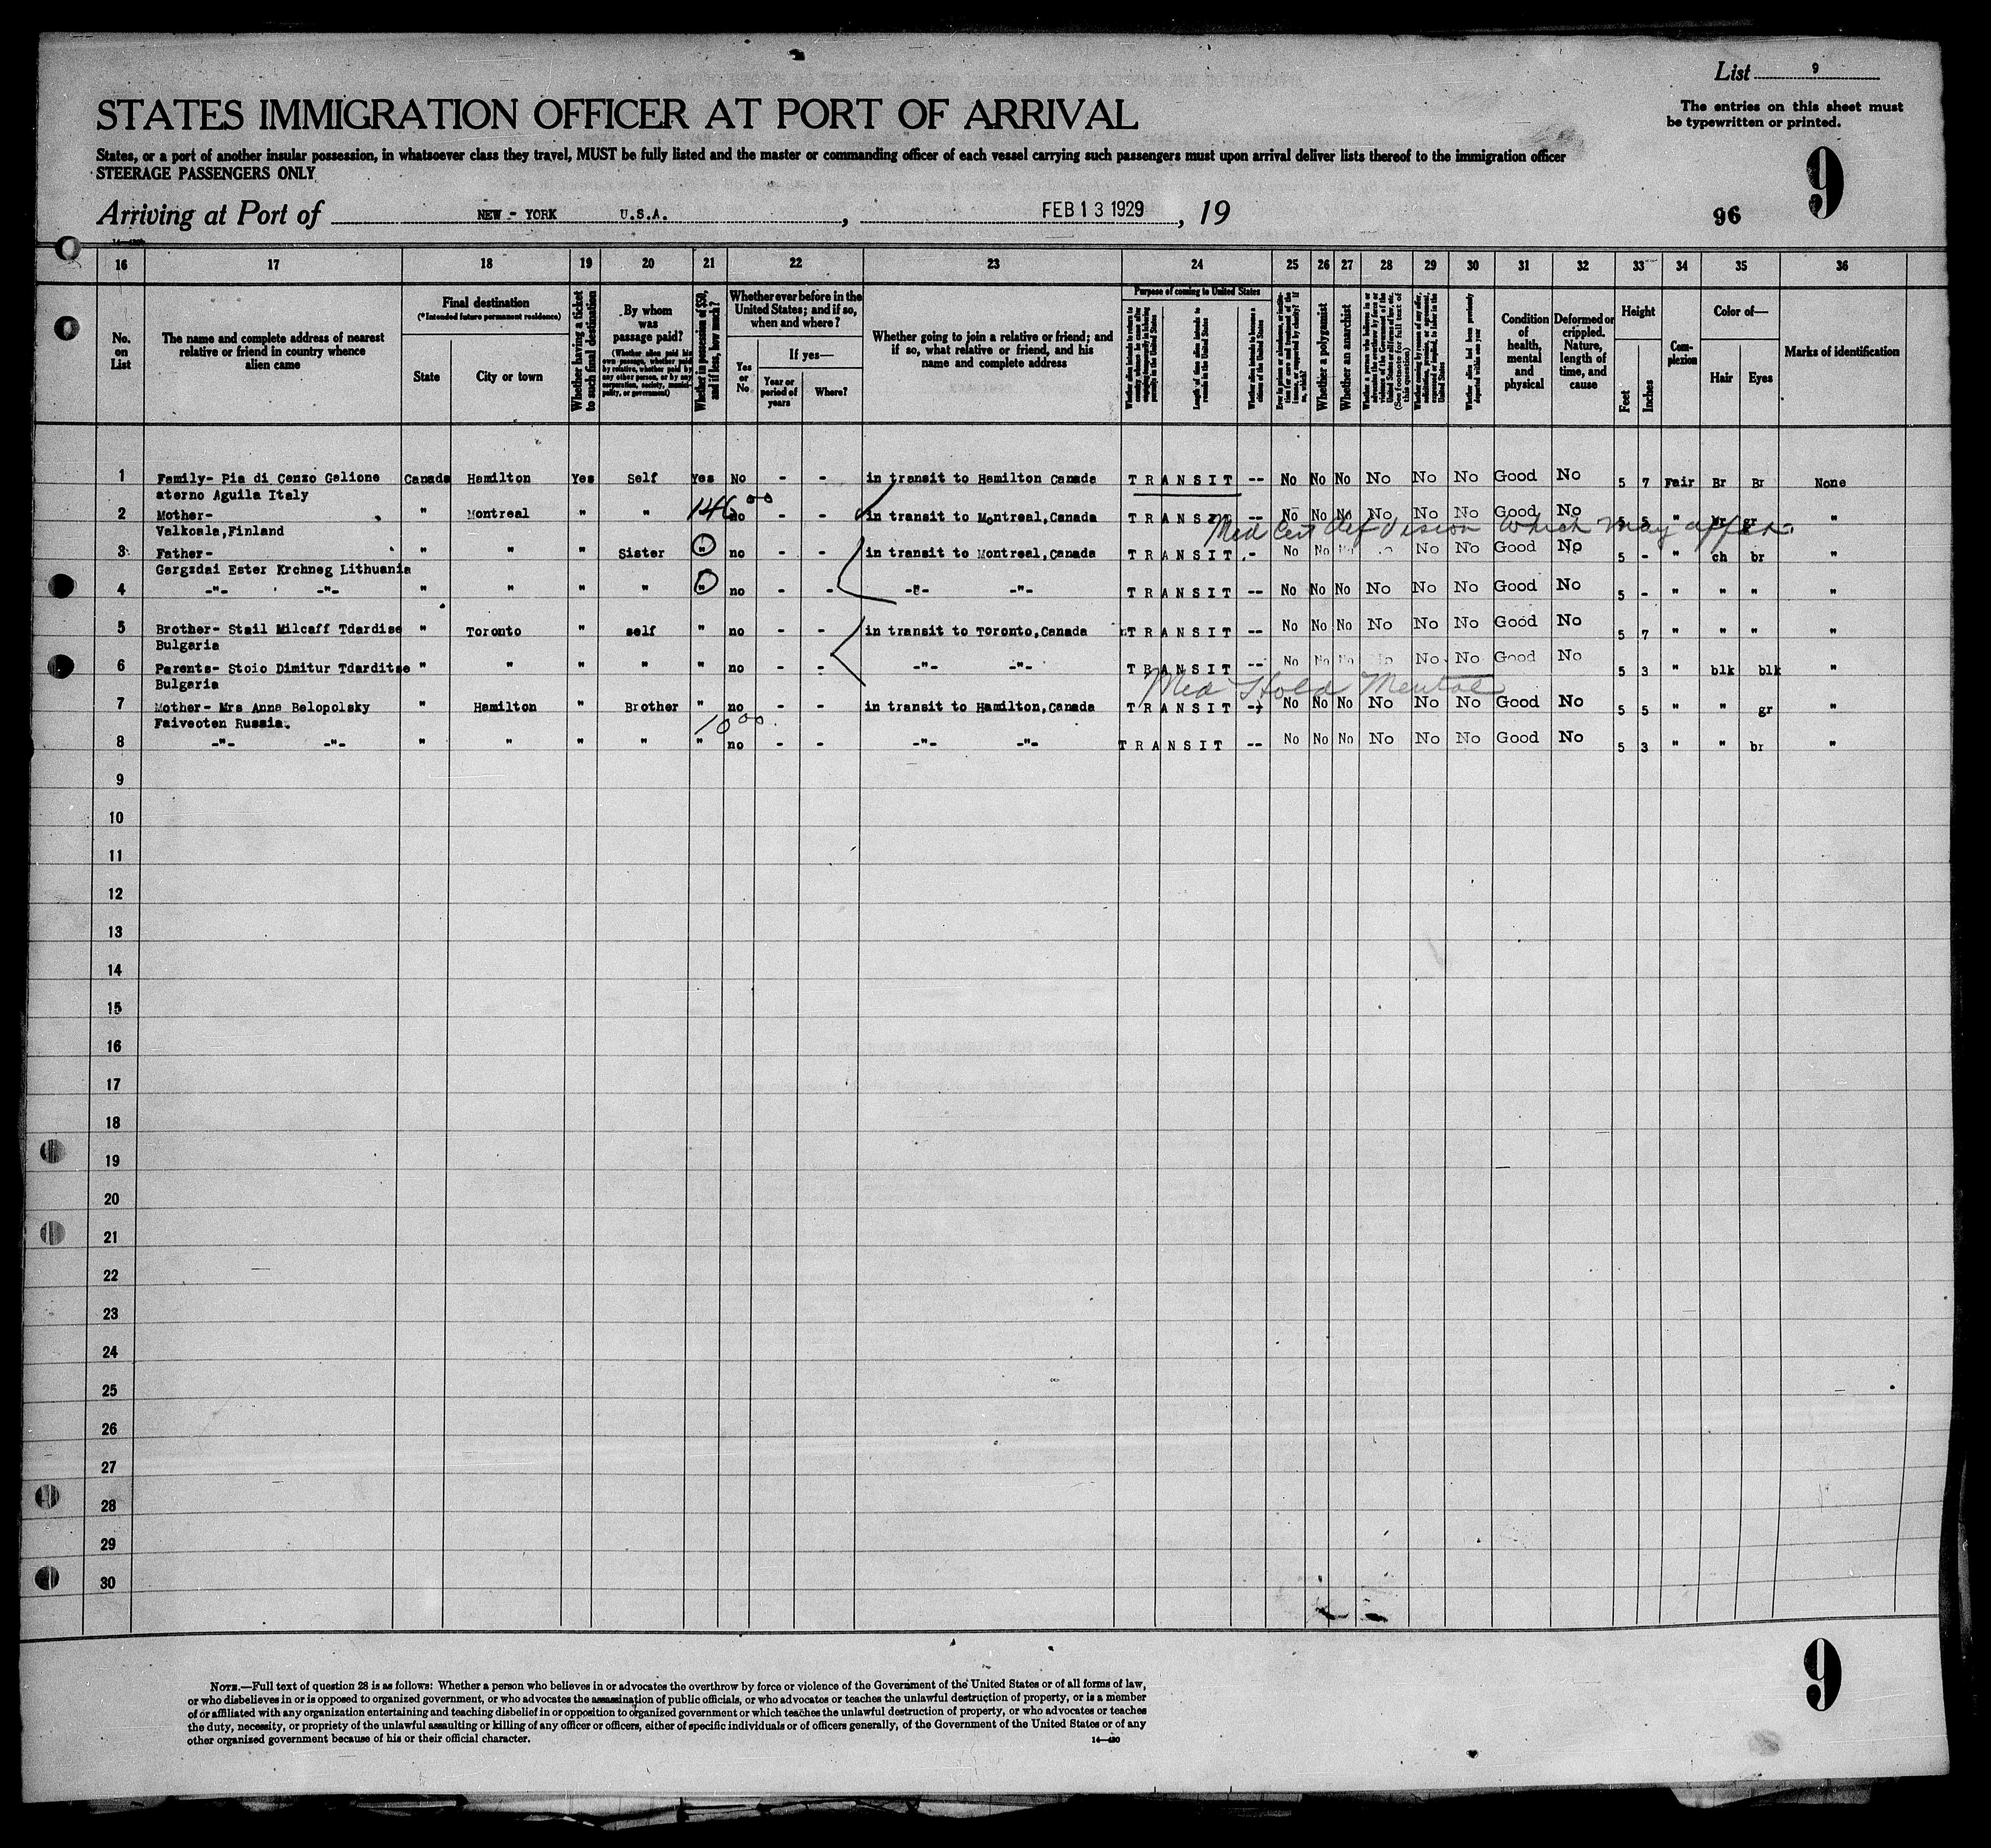 List 9
The entries on this sheet must
be typewritten or printed.
STATES IMMIGRATION OFFICER AT PORT OF ARRIVAL
States, or a port of another insular possession, in whatsoever class they travel, MUST be fully listed and the master or commanding officer of each vessel carrying such passengers must upon arrival deliver lists thereof to the immigration officer
STEERAGE PASSENGERS ONLY
9
Arriving at Port of NEW - YORK U.S.A. , FEB 13 1929 , 19
96
16 17 18 19 20 21 22 23 24 25 26 27 28 29 30 31 32 33 34 35 36
No. on List
The name and complete address of nearest relative or friend in country whence alien came
Final destination
(*Intended future permanent residence)
State
City or town
Whether having a ticket to such final destination
By whom was passage paid?
(Whether alien paid his own passage, whether paid by relative, whether paid by any other person, or by any corporation, society, municipality, or government)
Whether in possession of $50, and if less, how much?
Whether ever before in the United States; and if so, when and where?
Yes or No
If yes—
Year or period of years
Where?
Whether going to join a relative or friend; and if so, what relative or friend, and his name and complete address
Purpose of coming to United States
Length of time alien intends to remain in the United States
Whether alien intends to become a citizen of the United States
Whether a polygamist
Whether an anarchist
(See footnote for full text of this question)
Whether alien had been previously deported within one year
Condition of health, mental and physical
Deformed or crippled. Nature, length of time, and cause
Height
Feet
Inches
Complexion
Color of—
Hair
Eyes
Marks of identification
1 Family- Pia di Cenzo Galione Canada Hamilton Yes Self Yes No - - in transit to Hamilton Canada TRANSIT -- No No No No No No Good No 5 7 Fair Br Br None
aterno Aguila Italy
146 00
2 Mother- " Montreal " " no - - in transit to Montreal,Canada TRANSIT -- No No No No No No Good No 5 5 " gr "
Valkoala,Finland
Med Cert def Vision which may affect
3 Father- " " " Sister " no - - in transit to Montreal,Canada TRANSIT - No No No No No Good No 5 - " ch br "
Gargzdai Ester Krchneg Lithuania
4 -"- -"- " " " " " no - - -"- -"- TRANSIT -- No No No No No No Good No 5 - " " " "
5 Brother- Stail Milcaff Tdardise " Toronto " self " no - - in transit to Toronto,Canada TRANSIT -- No No No No No No Good No 5 7 " " " "
Bulgaria
6 Parents- Stoio Dimitur Tdarditse " " " " " no - - -"- -"- TRANSIT -- No No No No No Good No 5 3 " blk blk "
Bulgaria
Med Hold Mental
7 Mother- Mrs Anna Belopolsky " Hamilton " Brother " no - - in transit to Hamilton,Canada TRANSIT -- No No No No No No Good No 5 5 " " gr "
Faiveoten Russia.
10 00
8 -"- -"- " " " " " no - - -"- -"- TRANSIT -- No No No No No No Good No 5 3 " " br "
9
10
11
12
13
14
15
16
17
18
19
20
21
22
23
24
25
26
27
28
29
30
9
NOTE.—Full text of question 28 is as follows: Whether a person who believes in or advocates the overthrow by force or violence of the Government of the United States or of all forms of law,
or who disbelieves in or is opposed to organized government, or who advocates the assassination of public officials, or who advocates or teaches the unlawful destruction of property, or is a member
of or affiliated with any organization entertaining and teaching disbelief in or opposition to organized government or which teaches the unlawful destruction of property, or who advocates or teaches
the duty, necessity, or propriety of the unlawful assaulting or killing of any officer or officers, either of specific individuals or of officers generally, of the Government of the United States or of any
other organized government because of his or their official character.
14—420